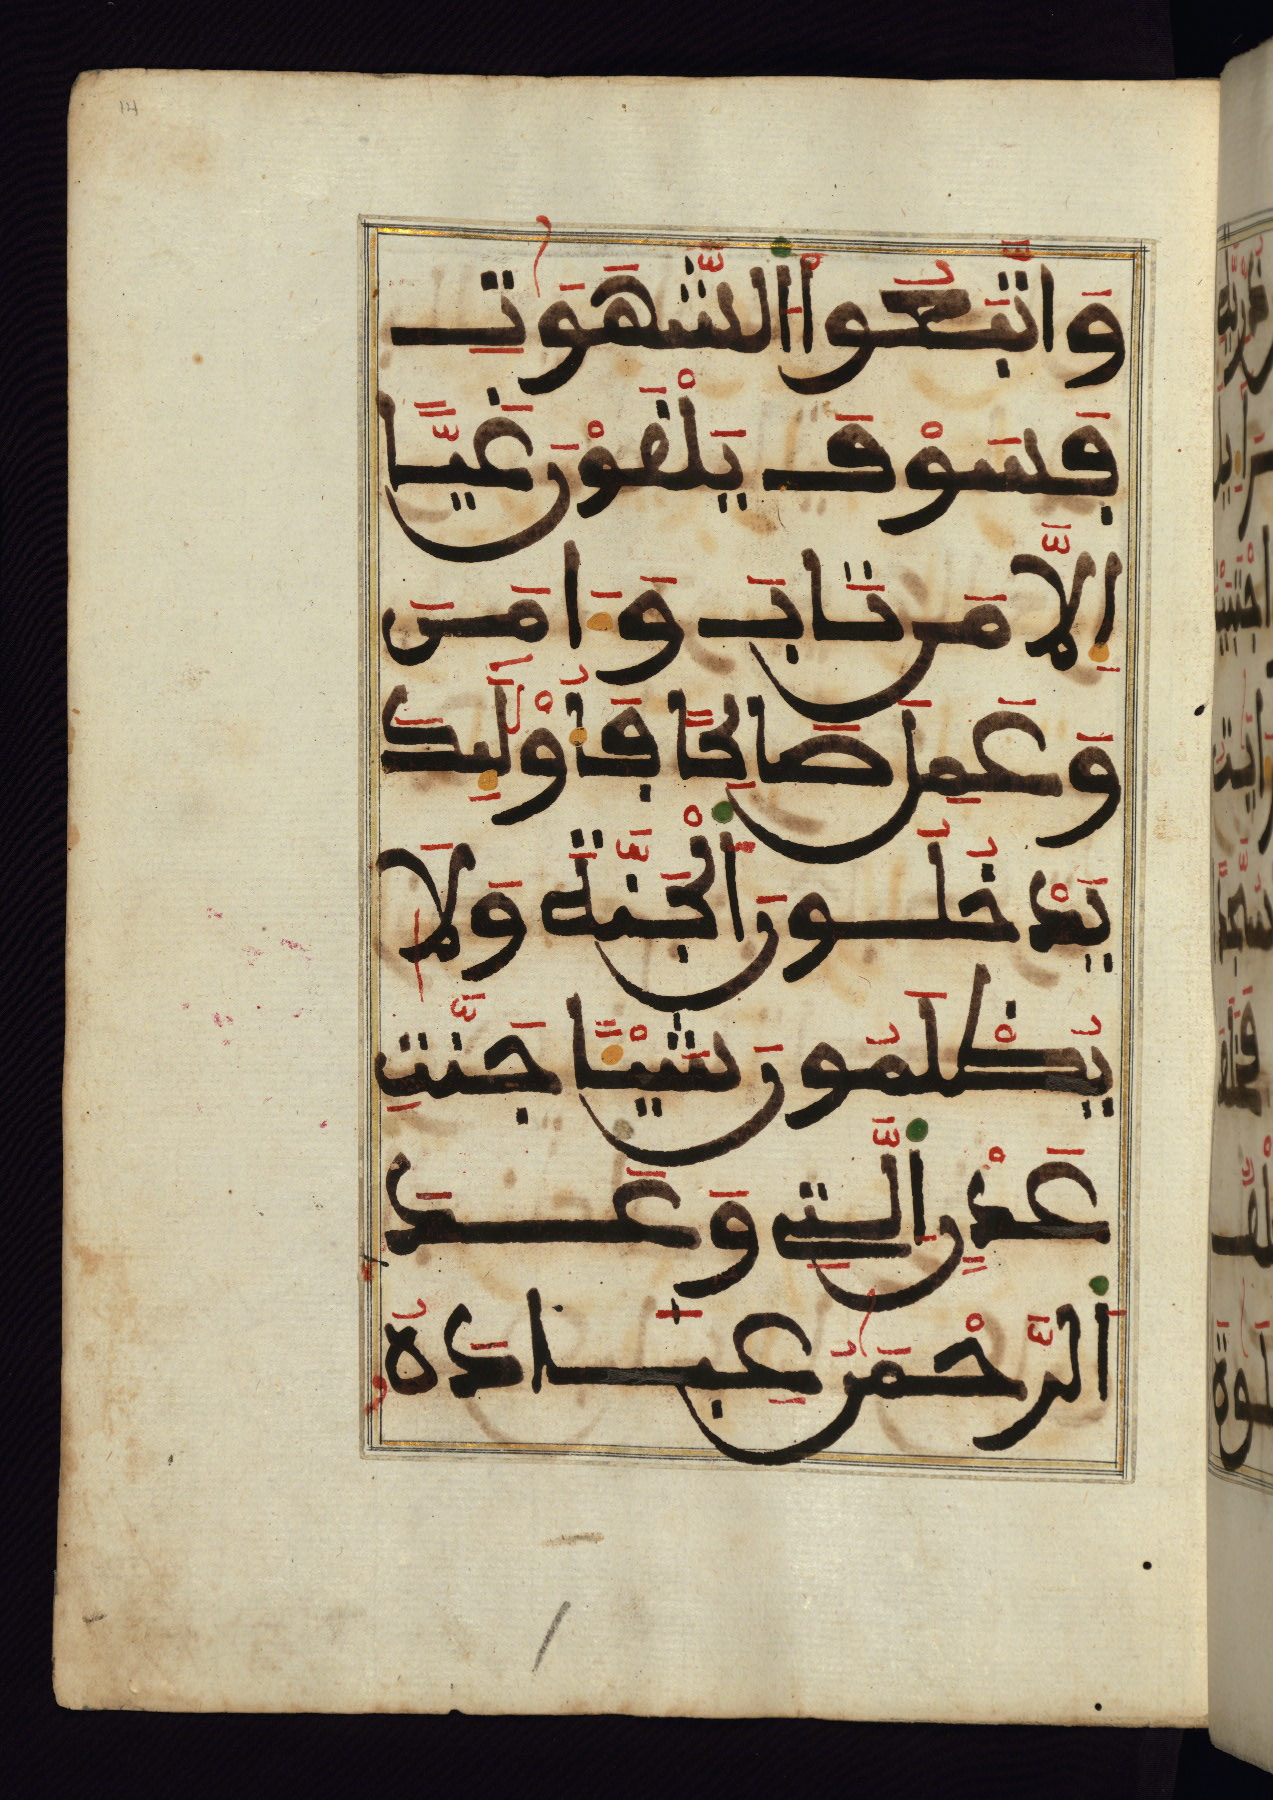 وَاتَّبَعُوا۟ اُ۬لشَّهَوَٰتِ
فَسَوْفَ يَلْقَوْنَ غَيًّا
إِلَّا مَن تَابَ وَءَامَنَ
وَعَمِلَ صَٰلِحًا فَأُوْلَٰٓئِكَ
يَدْخُلُونَ اَ۬لْجَنَّةَ وَلَا
يُظْلَمُونَ شَيْـًٔا جَنَّٰتِ
عَدْنٍ اِ۬لَّتِي وَعَدَ
اَ۬لرَّحْمَٰنُ عِبَادَهُ